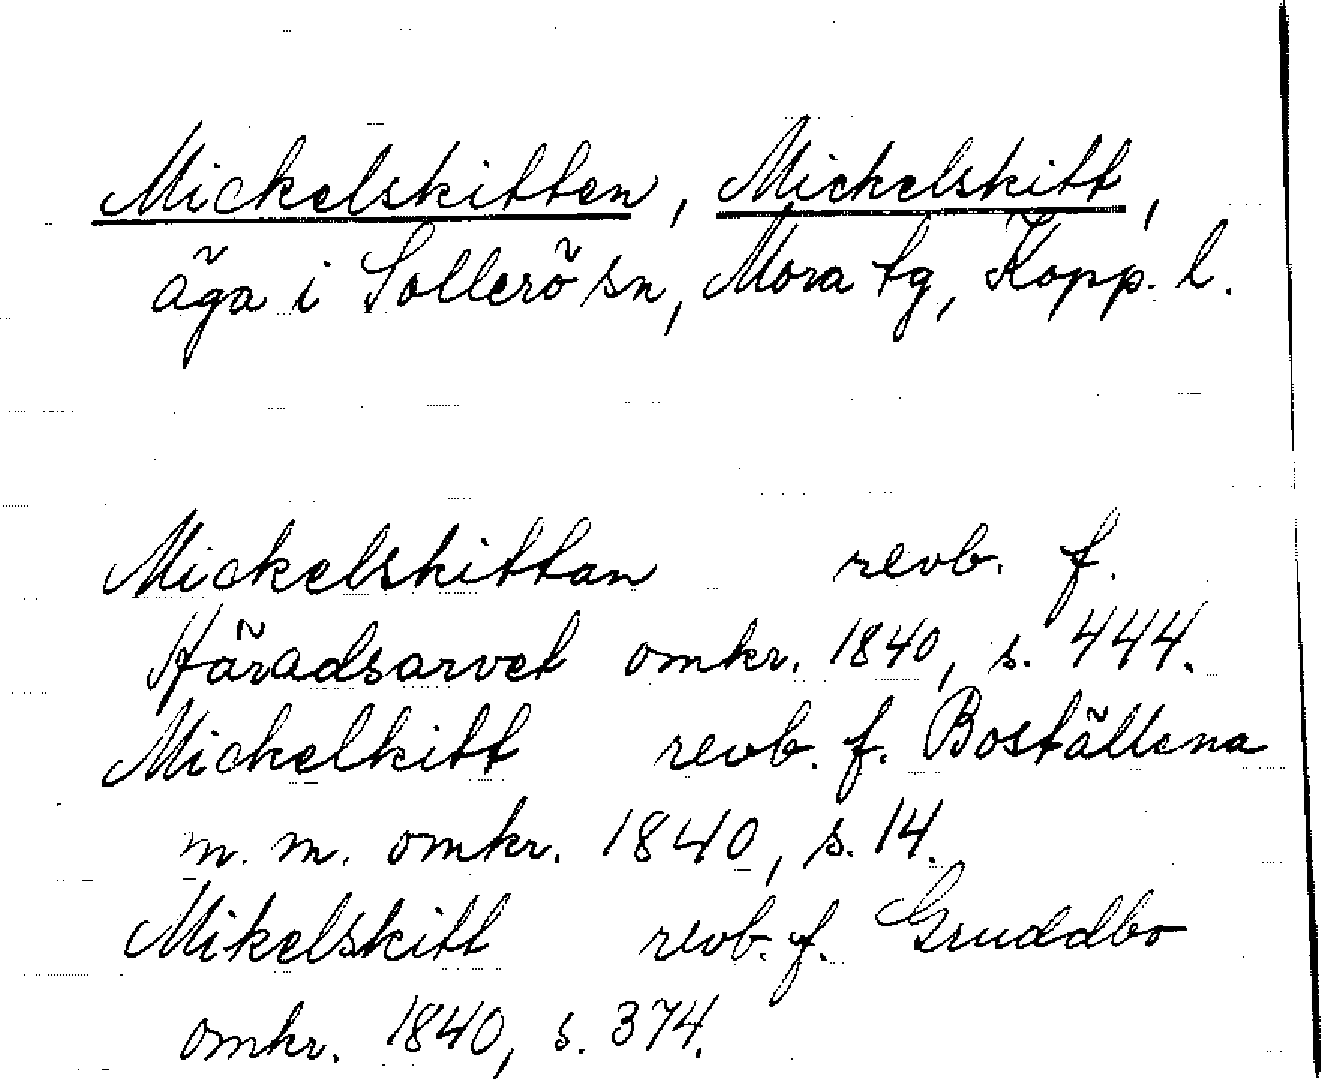 Mickelskitten, Mickelskitt,
äga i Sollerö sn, Mora tg, Kopp. l.
Mickelskittan revb. f.
Häradsarvet omkr. 1840, s. 444.
Mickelkitt revb. f. Boställena
m. m. omkr. 1840, s. 14.
Mikelskitt revb. f. Gruddbo
omkr. 1840, s. 374.